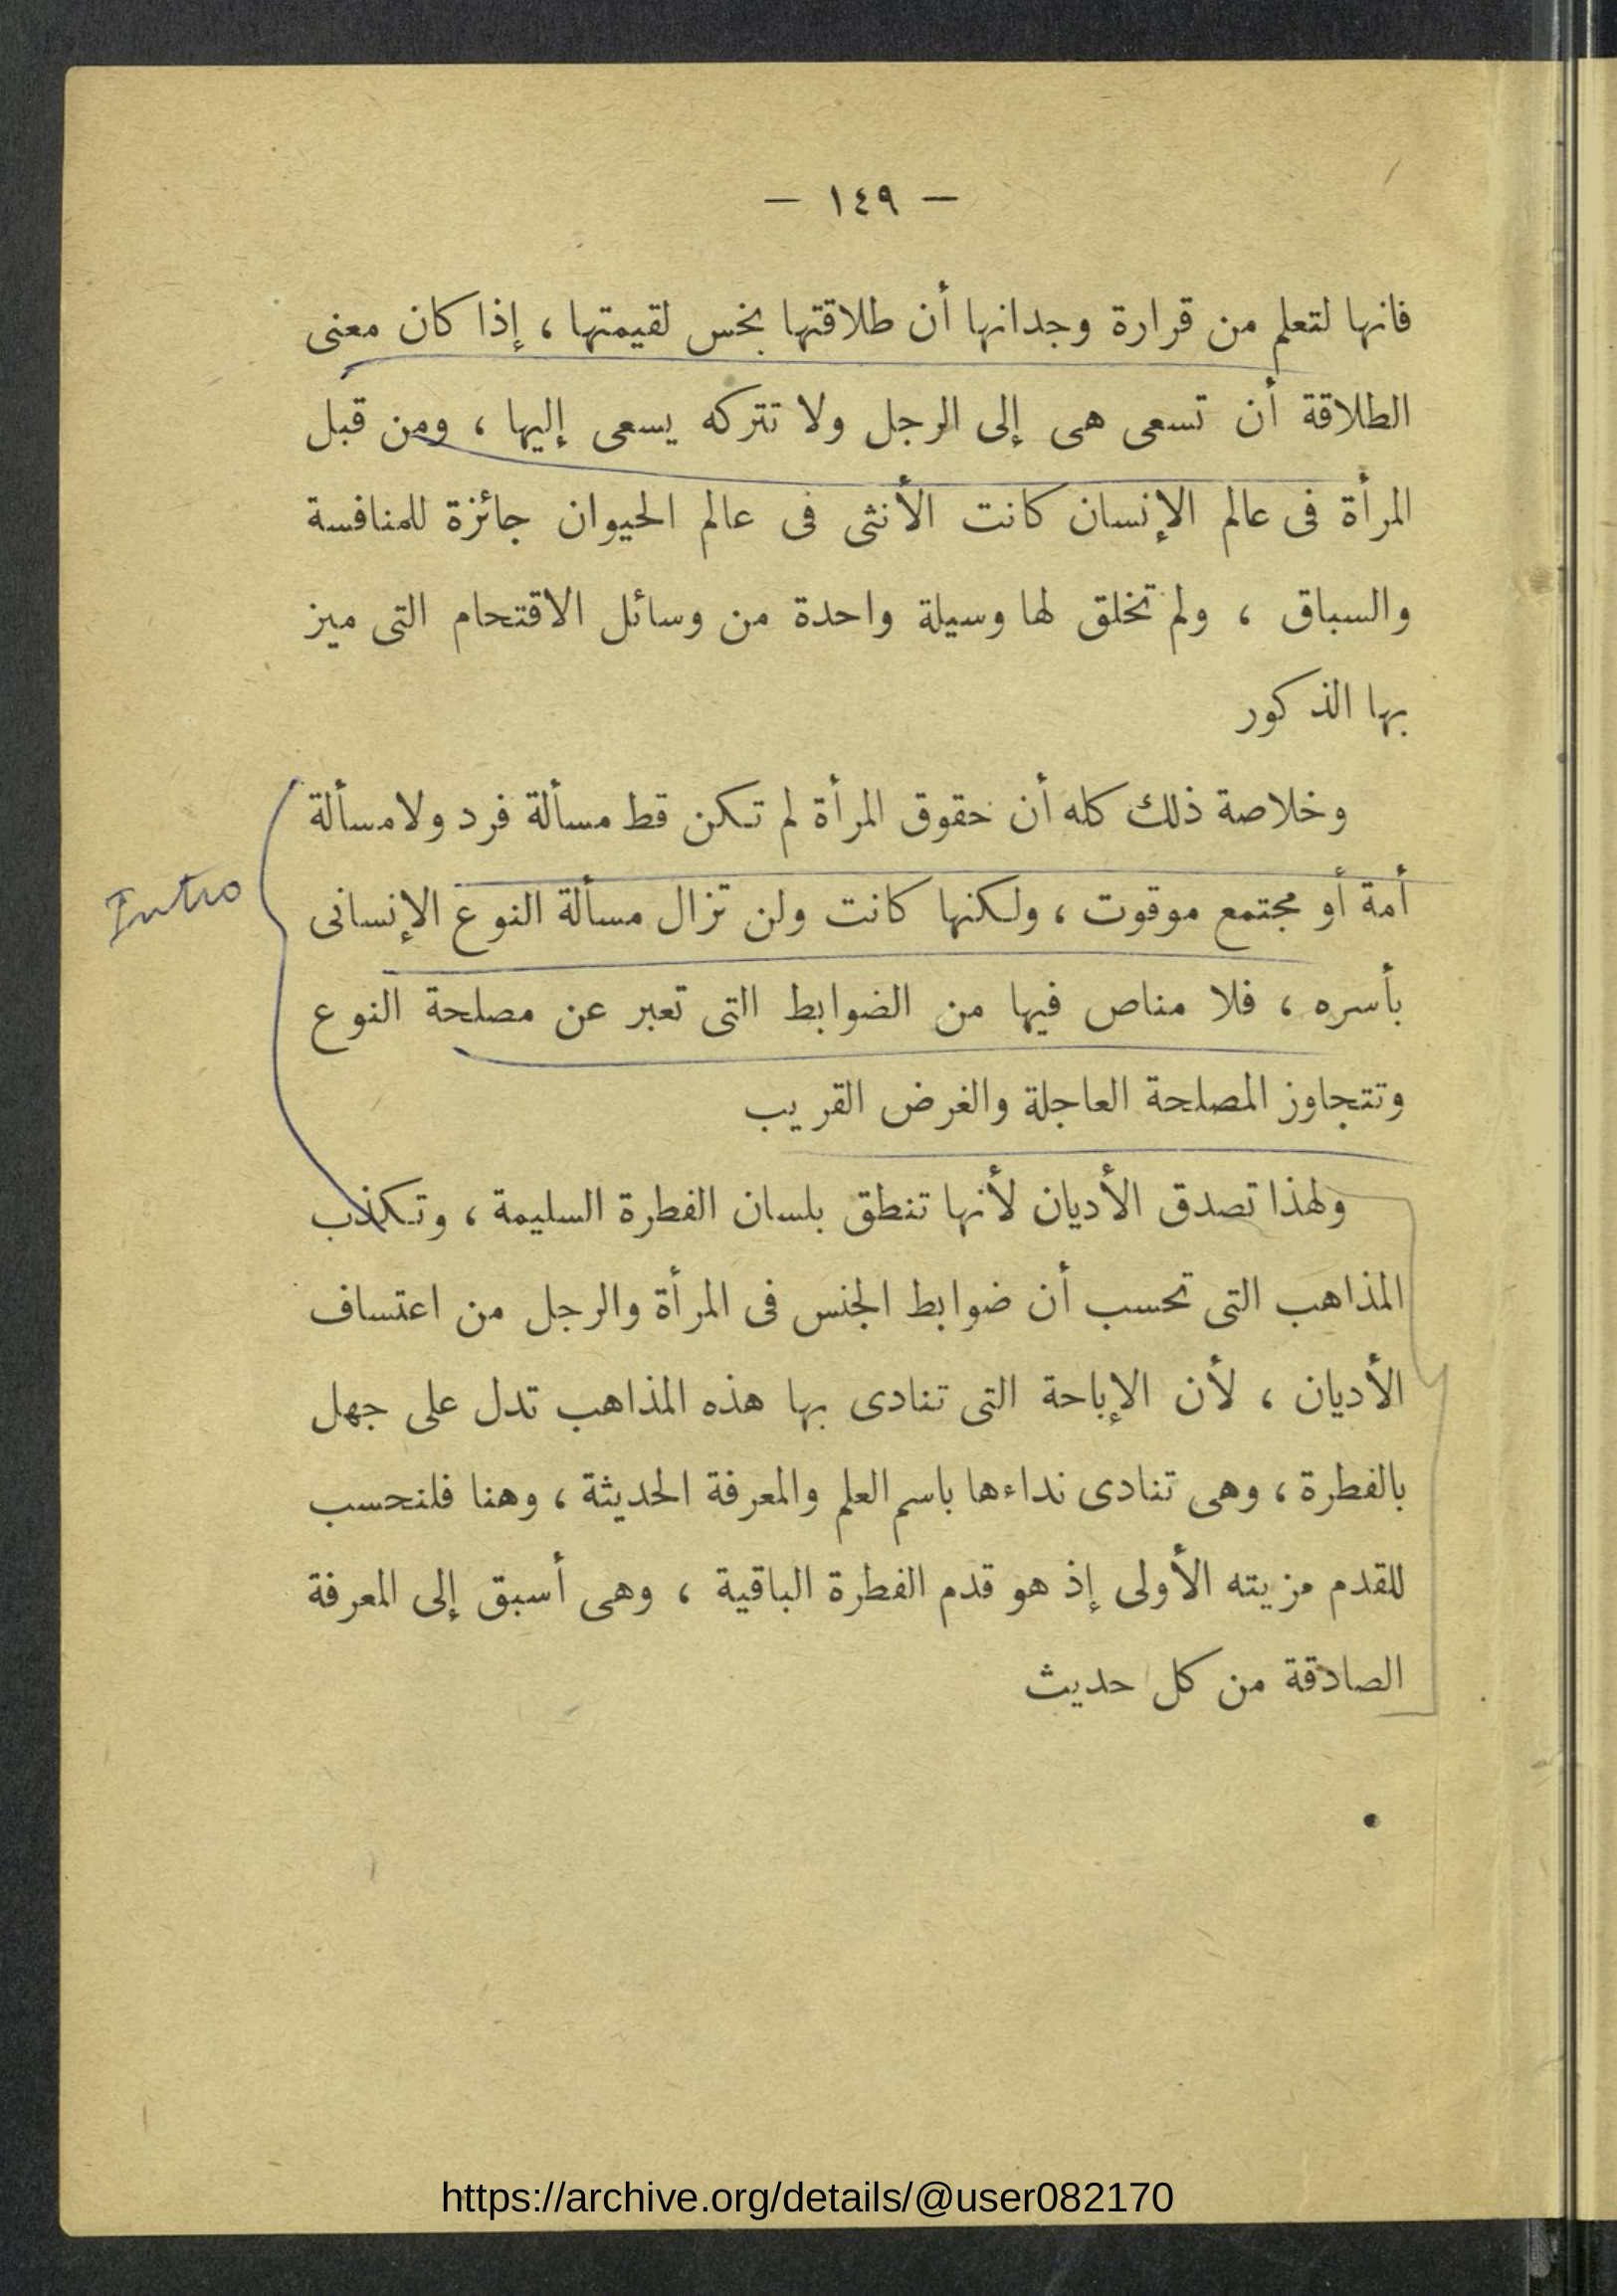 — ١٤٩ —
فانها لتعلم من قرارة وجدانها أن طلاقتها بخس لقيمتها ، إذا كان معنى
الطلاقة أن تسعى هى إلى الرجل ولا تتركه يسعى إليها ، ومن قبل
المرأة فى عالم الإنسان كانت الأنثى فى عالم الحيوان جائزة للمنافسة
والسباق ، ولم تخلق لها وسيلة واحدة من وسائل الاقتحام التى ميز
بها الذكور
وخلاصة ذلك كله أن حقوق المرأة لم تكن قط مسألة فرد ولا مسألة
أمة أو مجتمع موقوت ، ولكنها كانت ولن تزال مسألة النوع الإنسانى
Intro
بأسره ، فلا مناص فيها من الضوابط التى تعبر عن مصلحة النوع
وتتجاوز المصلحة العاجلة والغرض القريب
ولهذا تصدق الأديان لأنها تنطق بلسان الفطرة السليمة ، وتكذب
المذاهب التى تحسب أن ضوابط الجنس فى المرأة والرجل من اعتساف
الأديان ، لأن الإباحة التى تنادى بها هذه المذاهب تدل على جهل
بالفطرة ، وهى تنادى نداءها باسم العلم والمعرفة الحديثة ، وهنا فلنحسب
للقدم مزيته الأولى إذ هو قدم الفطرة الباقية ، وهى أسبق إلى المعرفة
الصادقة من كل حديث
https://archive.org/details/@user082170